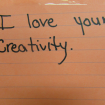 I love your
Creativity.